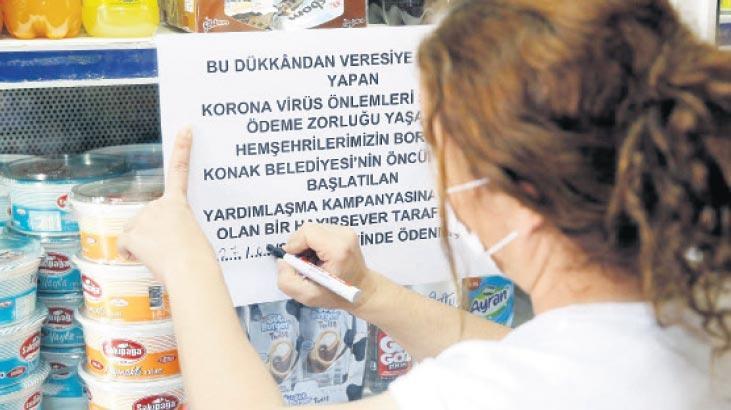 BU DÜKKÂNDAN VERESİYE
YAPAN
KORONA VİRÜS ÖNLEMLERİ
ÖDEME ZORLUĞU YAŞA
HEMŞEHRİLERİMİZİN BOR
KONAK BELEDİYESİ'NİN ÖNCÜ
BAŞLATILAN
YARDIMLAŞMA KAMPANYASINA
OLAN BİR HAYIRSEVER TARAF
İNDE ÖDEN
Sakıpağa
Sakıpağa
Sakıpağa
Ayran